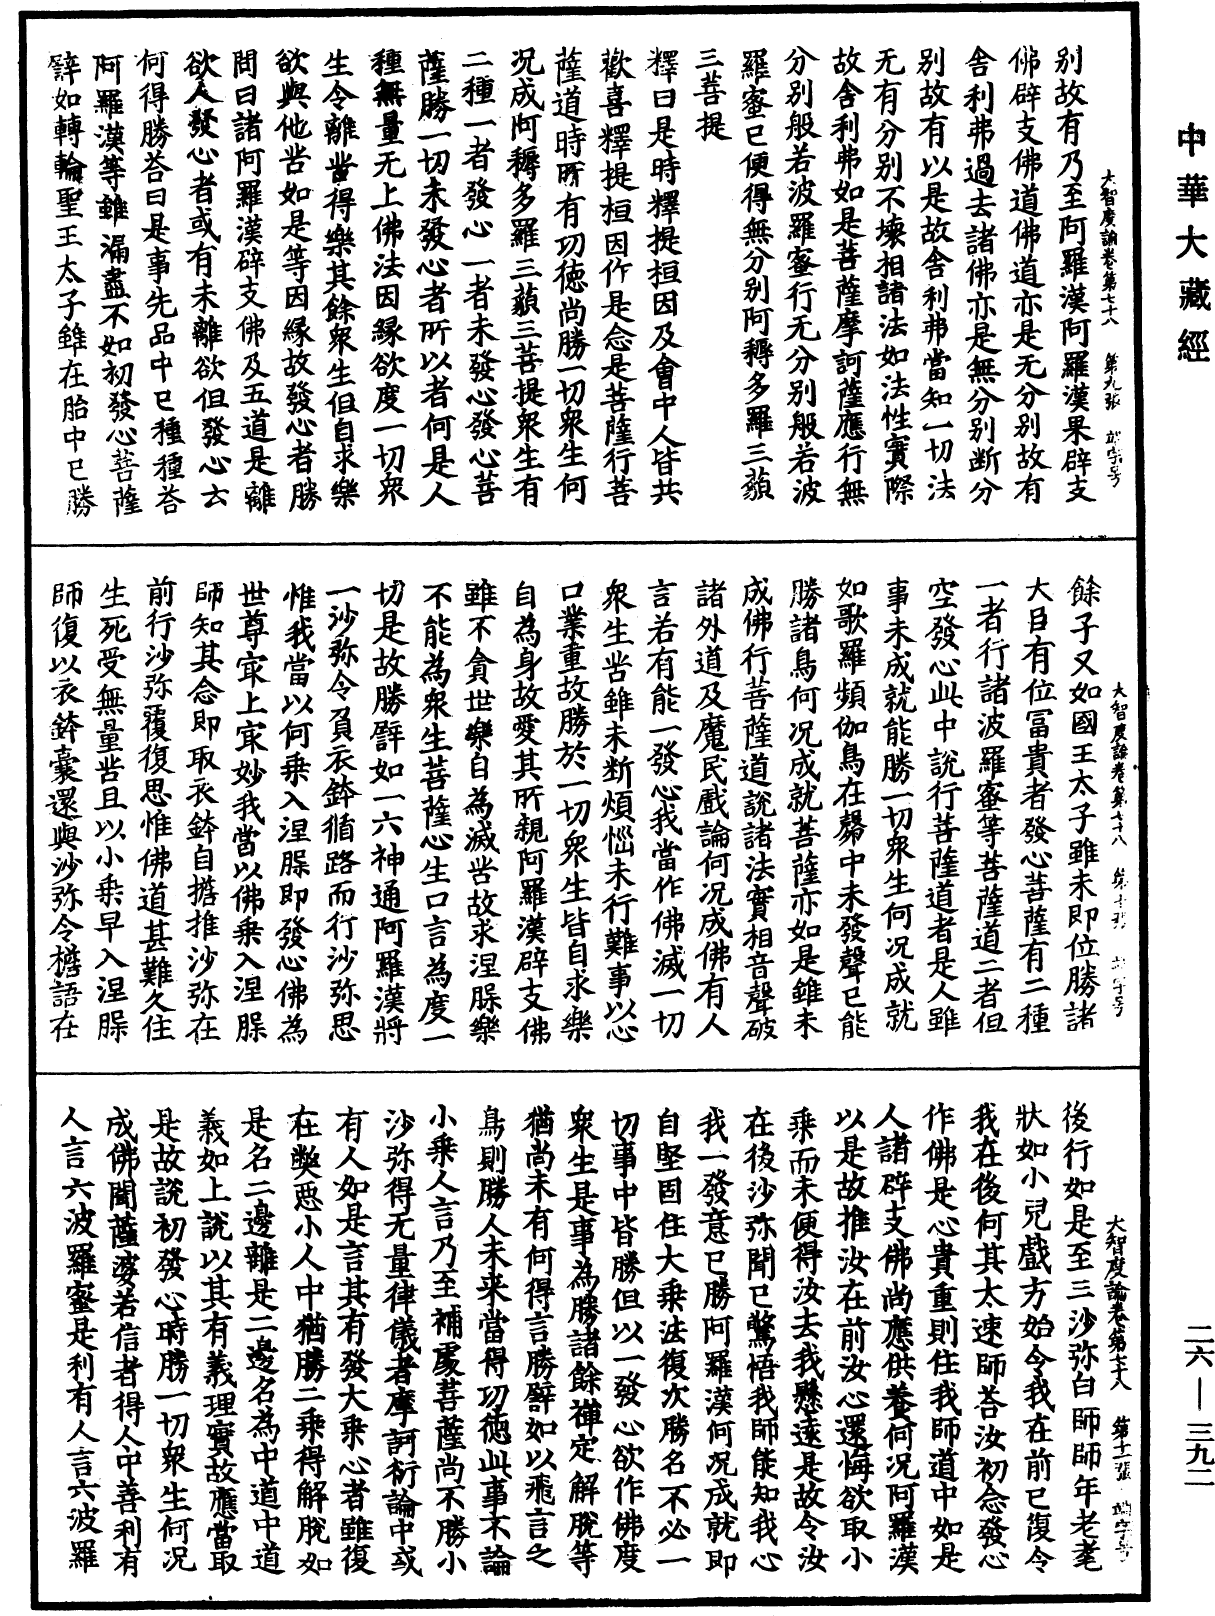 中華大藏經
大智度論卷第七十八　第九張　端字号
别故有乃至阿羅漢阿羅漢果辟支
佛辟支佛道佛道亦是无分别故有
舍利弗過去諸佛亦是無分别断分
别故有以是故舍利弗當知一切法
无有分别不壞相諸法如法性實際
故舍利弗如是菩薩摩訶薩應行無
分别般若波羅蜜行无分别般若波
羅蜜已便得無分别阿耨多羅三藐
三菩提
釋曰是時釋提桓因及會中人皆共
歡喜釋提桓因作是念是菩薩行菩
薩道時所有功德尚勝一切衆生何
况成阿耨多羅三藐三菩提衆生有
二種一者發心一者未發心發心菩
薩勝一切未發心者所以者何是人
種無量无上佛法因緣欲度一切衆
生令離苦得樂其餘衆生但自求樂
欲與他苦如是等因緣故發心者勝
問曰諸阿羅漢辟支佛及五道是離
欲人發心者或有未離欲但發心云
何得勝答曰是事先品中已種種答
阿羅漢等雖漏盡不如初發心菩薩
譬如轉輪聖王太子雖在胎中已勝
大智度論卷第七十八　第十張　端字号
餘子又如國王太子雖未即位勝諸
大臣有位冨貴者發心菩薩有二種
一者行諸波羅蜜等菩薩道二者但
空發心此中說行菩薩道者是人雖
事未成就能勝一切衆生何况成就
如歌羅頻伽鳥在㲉中未發聲已能
勝諸鳥何况成就菩薩亦如是雖未
成佛行菩薩道說諸法實相音聲破
諸外道及魔民戲論何况成佛有人
言若有能一發心我當作佛滅一切
衆生苦雖未断煩惱未行難事以心
口業重故勝於一切衆生皆自求樂
自為身故愛其所親阿羅漢辟支佛
雖不貪世樂自為滅苦故求涅槃樂
不能為衆生菩薩心生口言為度一
切是故勝譬如一六神通阿羅漢將
一沙弥令負衣鉢循路而行沙弥思
惟我當以何乘入涅槃即發心佛為
世尊㝡上㝡妙我當以佛乘入涅槃
師知其念即取衣鉢自擔推沙弥在
前行沙弥覆復思惟佛道甚難久住
生死受無量苦且以小乘早入涅槃
師復以衣鉢囊還與沙弥令擔語在
大智度論卷第七十八　第十一張　端字号
後行如是至三沙弥白師師年老耄
狀如小兒戲方始令我在前已復令
我在後何其太速師答汝初念發心
作佛是心貴重則住我師道中如是
人諸辟支佛尚應供養何况阿羅漢
以是故推汝在前汝心還悔欲取小
乘而未便得汝去我懸遠是故令汝
在後沙弥聞已驚悟我師能知我心
我一發意已勝阿羅漢何况成就即
自堅固住大乘法復次勝名不必一
切事中皆勝但以一發心欲作佛度
衆生是事為勝諸餘禪定解脫等
猶尚未有何得言勝譬如以飛言之
鳥則勝人未来當得功德此事不論
小乘人言乃至補處菩薩尚不勝小
沙弥得无量律儀者摩訶衍論中或
有人如是言其有發大乘心者雖復
在弊惡小人中猶勝二乘得解脫如
是名二邊離是二邊名為中道中道
義如上說以其有義理實故應當取
是故說初發心時勝一切衆生何况
成佛聞薩婆若信者得人中善利有
人言六波羅蜜是利有人言六波羅
二六—三九二